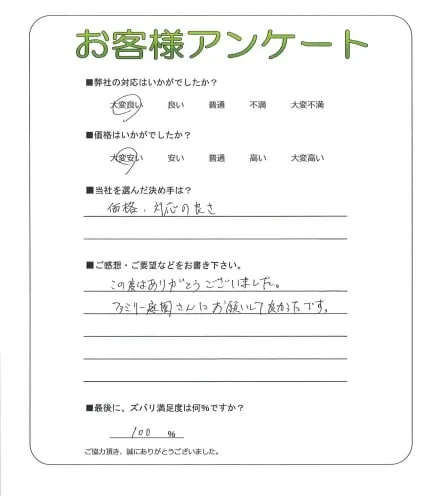 お客様アンケート
■弊社の対応はいかがでしたか？
大変良い 良い 普通 不満 大変不満
■価格はいかがでしたか？
大変安い 安い 普通 高い 大変高い
■当社を選んだ決め手は？
価格、対応の良さ
■ご感想・ご要望などをお書き下さい。
この度はありがとうございました。
ファミリー庭園さんにお願いして良かったです。
■最後に、ズバリ満足度は何%ですか？
100 %
ご協力頂き、誠にありがとうございました。